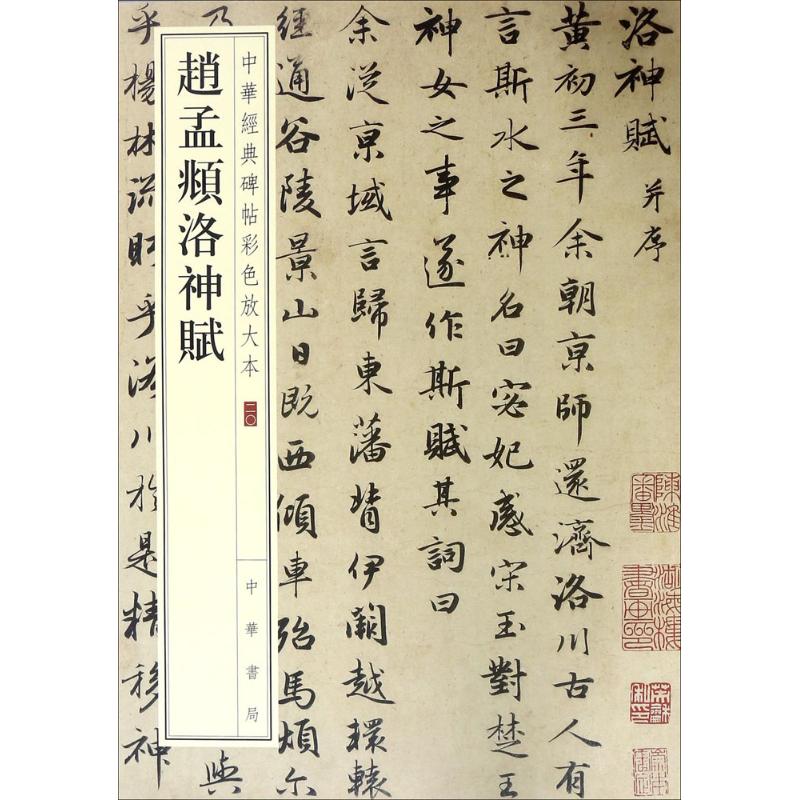 洛神賦 并序
黃初三年余朝亰師還濟洛川古人有
言斯水之神名曰宓妃感宋玉對楚王
神女之事遂作斯賦其詞曰
余從亰域言歸東藩背伊闕越轘轅
經通谷陵景山日既西傾車殆馬煩尓
乃
與
乎楊林流眄乎洛川於是精移神
中華經典碑帖彩色放大本 二〇
中華書局
趙孟頫洛神賦